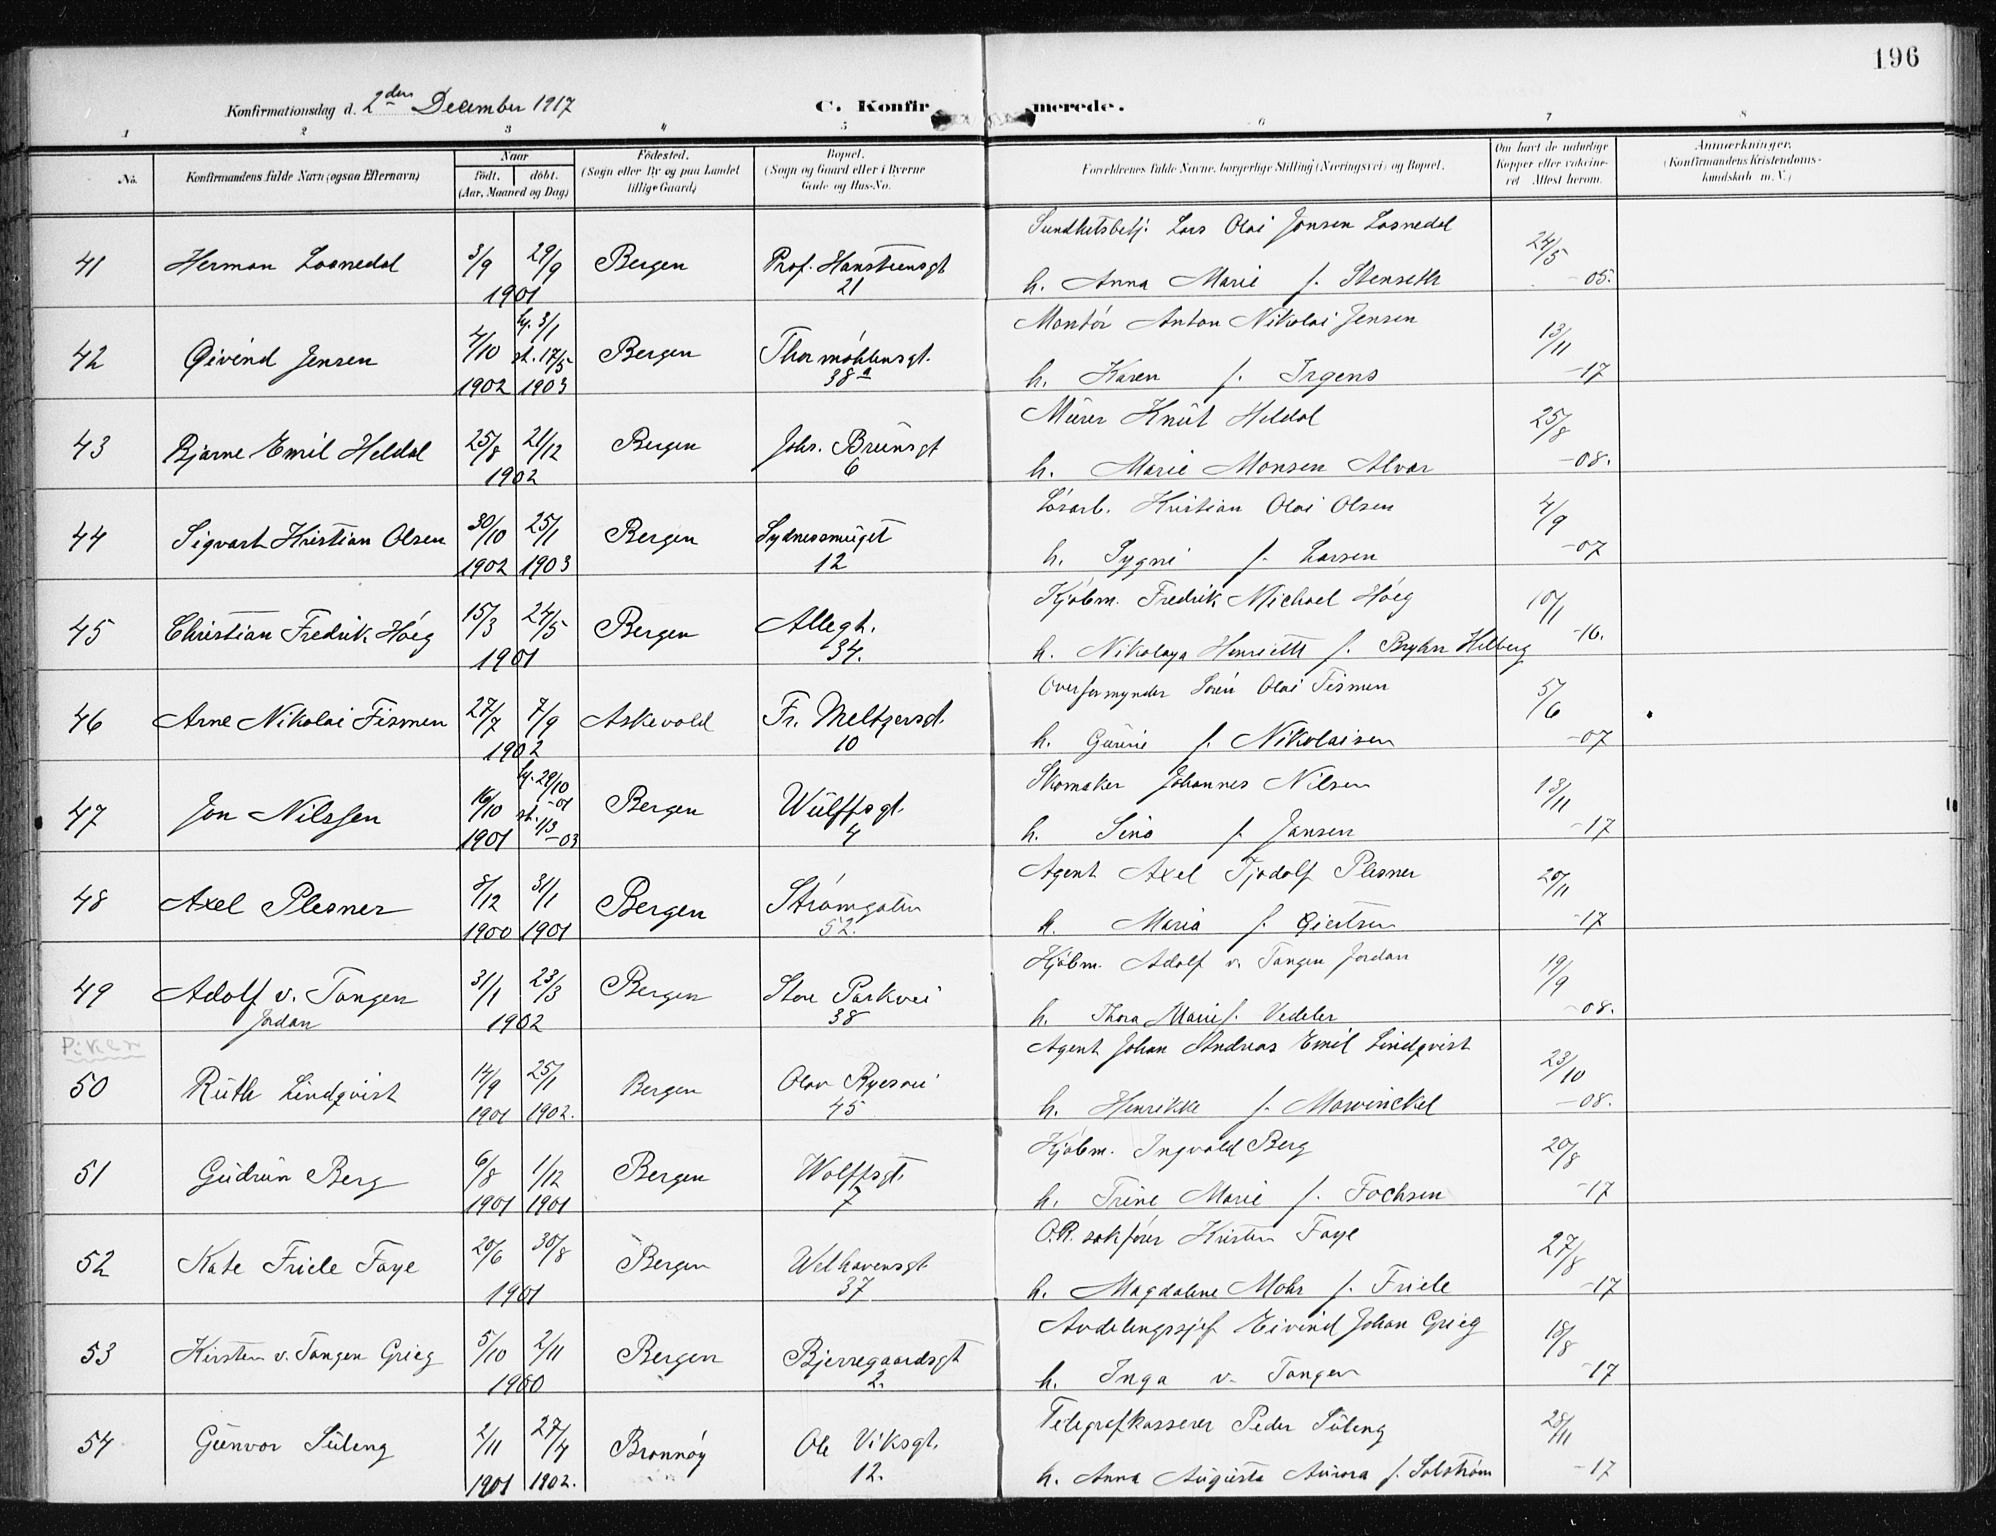 196
Konfirmationsdag d. 2den December 1917 C. Konfirmerede.
1 2 3 4 5 6 7 8
No. Konfirmandens fulde Navn (ogsaa Efternavn) Naar født. døbt. (Aar, Maaned og Dag) Fødested. (Sogn eller By og paa Landet tillige Gaard) Bopæl. (Sogn og Gaard eller i Byerne Gade og Hus-No. Forældrenes fulde Navne, borgerlige Stilling (Næringsvei) og Bopæl. Om havt de naturlige Kopper eller vakcineret Attest herom. Anmerkninger. (Konfirmandens Kristendomskundskab m. V.)
Sundhetsbetj. Lars Olai Jonsen Losnedal
41 Herman Losnedal 3/9 29/9 Bergen Prof. Hansteensgt 24/5
1901 21 h. Anna Marie f. Stenseth -05.
Montør Anton Nikolai Jensen
42 Øivind Jensen 4/10 hj. 3/1 st. 17/5 Bergen Thormøhlensgt. 13/11
1902 1903 38a h. Karen f. Irgens -17
Murer Knut Heldal
43 Bjarne Emil Heldal 25/8 21/12 Bergen Johs. Brunsgt 25/8
1902 6 h. Marie Monsen Alvær -08.
Løsarb. Kristian Olai Olsen
44 Sigvart Kristian Olsen 30/10 25/1 Bergen Sydnessmuget 4/9
1902 1903 12 h. Sygni f. Larsen -07
Kjøbm. Fredrik Michael Høeg
45 Christian Fredrik Høeg 15/3 24/5 Bergen Allegt. 10/1
1901 34. h. Nikolaya Henriette f. Bryhn Helberg -16.
Overformynder Søren Olai Tismen
46 Arne Nikolai Tismen 27/7 7/9 Askevold Fr. Meltzersgt. 5/6
1902 10 h. Gurine f. Nikolaisen -07
Skomaker Johannes Nilsen
47 Jon Nilssen 16/10 hj. 29/10 -01 st. 1/3 -03 Bergen Wulffsgt. 13/11
1901 4 h. Sina f. Jansen -17
Agent Axel Tjodolf Plesner
48 Axel Plesner 8/12 31/1 Bergen Strømgaten 20/11
1900 1901 52. h. Maria f. Giertsen -17
Kjøbm. Adolf v. Tangen Jordan
49 Adolf v. Tangen Jordan 31/1 23/3 Bergen Store Parkvei 19/9
1902 38 h. Thora Marie f. Vedeler -08.
Piker
Agent Johan Andreas Emil Lindqvist
50 Ruth Lindqvist 14/9 25/1 Bergen Olav Ryesvei 23/10
1901 1902. 45 h. Henrikke f. Mowinckel -08.
Kjøbm. Ingvald Berg
51 Gudrun Berg 6/8 1/12 Bergen Wolffsgt. 20/8
1901 1901 7 h. Trine Marie f. Fochsen -17
O.R. sakfører Kirsten Faye
52 Kate Friele Faye 20/6 30/8 Bergen Welhavensgt. 27/8
1901 37 h. Magdalene Mohr f. Friele -17
Avdelingssjef Eivind Johan Grieg
53 Kirsten v. Tangen Grieg 5/10 2/11 Bergen Bjerregaardsgt 18/8
1900 2. h. Inga v. Tangen -17
Telegrafkasserer Peder Süleng
54 Gunvor Süleng 2/11 27/4 Brønnøy Ole Viksgt. 28/11
1901 1902. 12. h. Anna Augusta Aurora f. Solstrøm -17